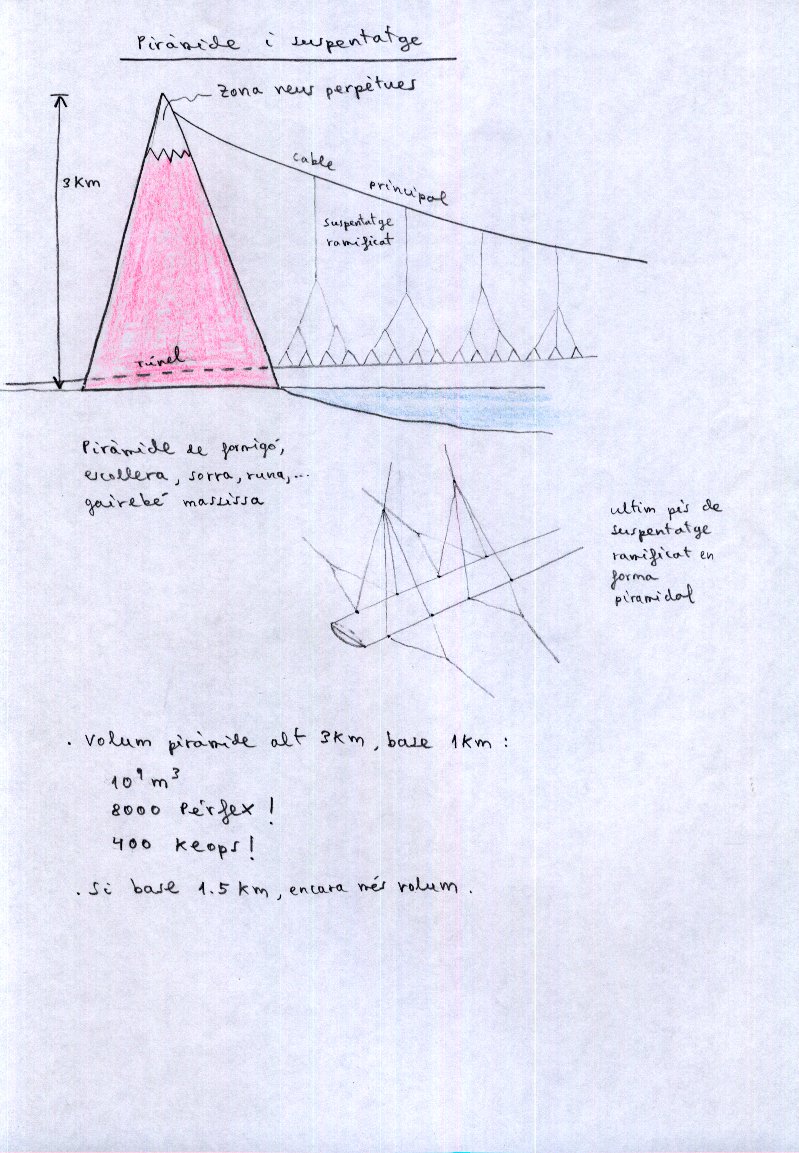 Piràmide i suspentatge
Zona neus perpètues
3 Km
cable
principal
suspentatge
ramificat
túnel
Piràmide de formigó,
escollera, sorra, runa,...
gairebé massissa
ultim pis de
suspentatge
ramificat en
forma
piramidal
. Volum piràmide alt 3Km, base 1Km :
10⁹ m³
8000 Pèrfex !
400 Keops !
. Si base 1.5 Km, encara més volum .